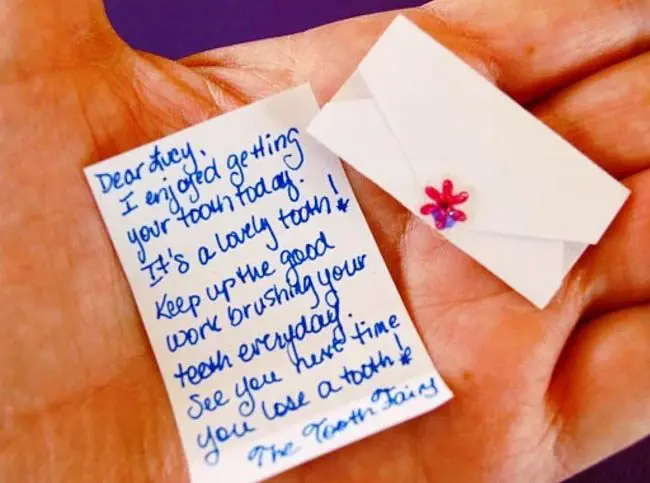 Dear Lucy,
I enjoyed getting
your tooth today.
It's a lovely tooth!
Keep up the good
work brushing your
teeth everyday.
See you next time
you lose a tooth!
The Tooth Fairy